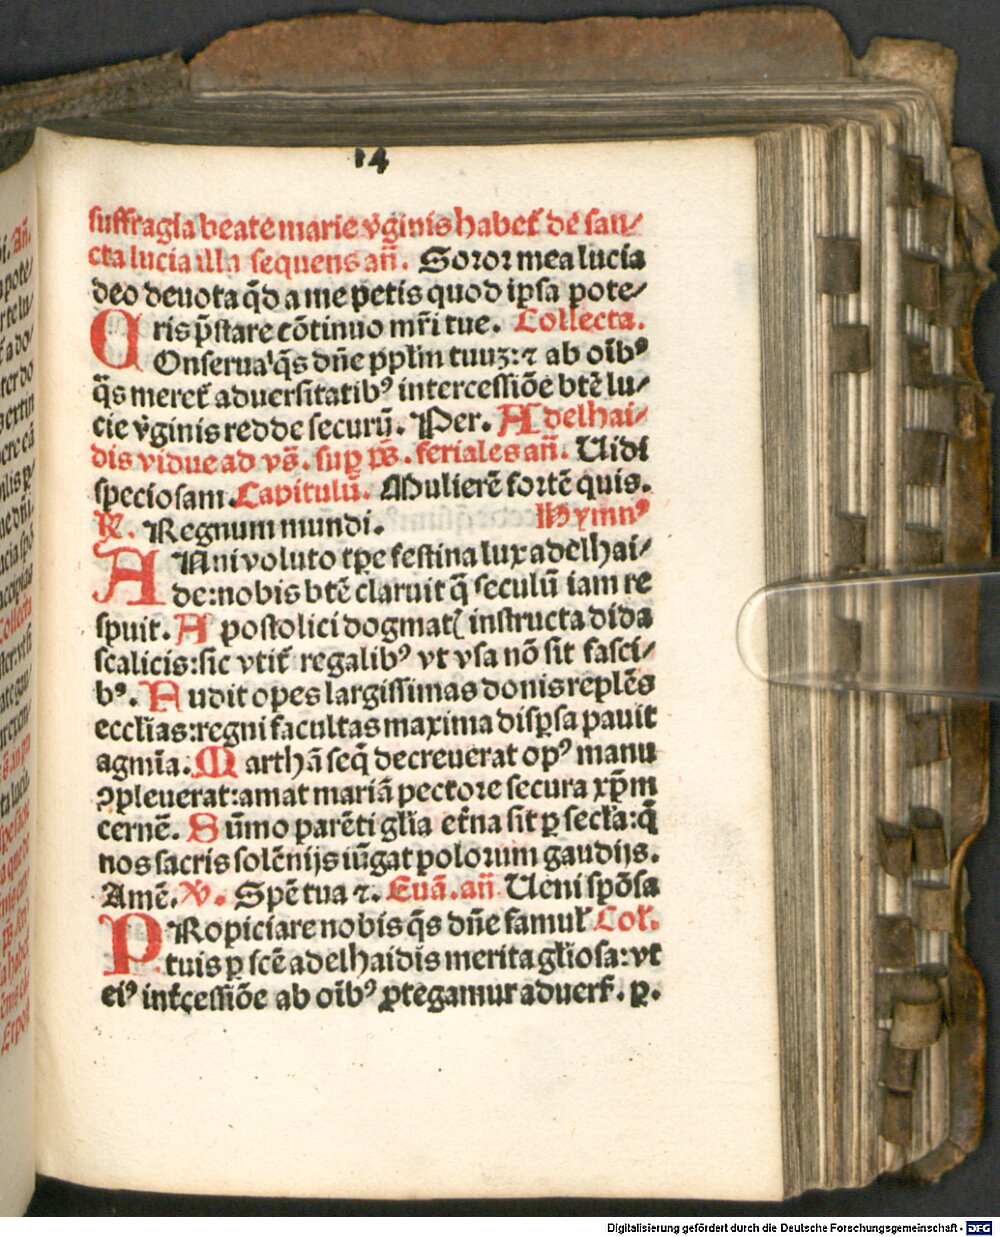 14
suffragia beate marie v̔ginis habet᷑ de san⸗
cta lucia illa sequens añ. Soror mea lucia
deo deuota q̃d a me petis quod ipsa pote⸗
ris p̃stare cõtinuo mr̃i tue. Collecta.
COnserua q̃s dñe pp̃lm tuuꝫ: ⁊ ab oĩbꝰ
q̃s meret᷑ aduersitatibꝰ intercessiõe btẽ lu⸗
cie v̔ginis redde securũ. Per. Adelhai⸗
dis vidue ad vs̃. suꝑ ps̃. feriales añ. Uidi
speciosam. Capitulũ. Mulierẽ fortẽ quis.
R̃. Regnum mundi. Hymnꝰ
ANni voluto tꝑe festina lux adelhai⸗
de: nobis btẽ claruit q̃ seculũ iam re
spuit. Apostolici dogmatꝭ instructa dida
scalicis: sic vtit᷑ regalibꝰ vt vsa nõ sit fasci⸗
bꝰ. Audit opes largissimas donis replẽs
ecclĩas: regni facultas maxima disꝑsa pauit
agmĩa. Marthã seq̃ decreuerat opꝰ manu
ꝯpleuerat: amat mariã pectore secura xp̃m
cernẽ. Sũmo parẽti glĩa et᷑na sit ꝑ secl̃a: q̃
nos sacris solẽnijs iũgat polorum gaudijs.
Amẽ. V̷. Spẽ tua ⁊. Euã. añ Ueni spõsa
PRopiciare nobis q̃s dñe famul̃ Col̃.
tuis ꝑ scẽ adelhaidis merita gl̃iosa: vt
eiꝰ int᷑cessiõe ab oĩbꝰ ꝓtegamur aduers̃. ꝑ.
Digitalisierung gefördert durch die Deutsche Forschungsgemeinschaft - DFG